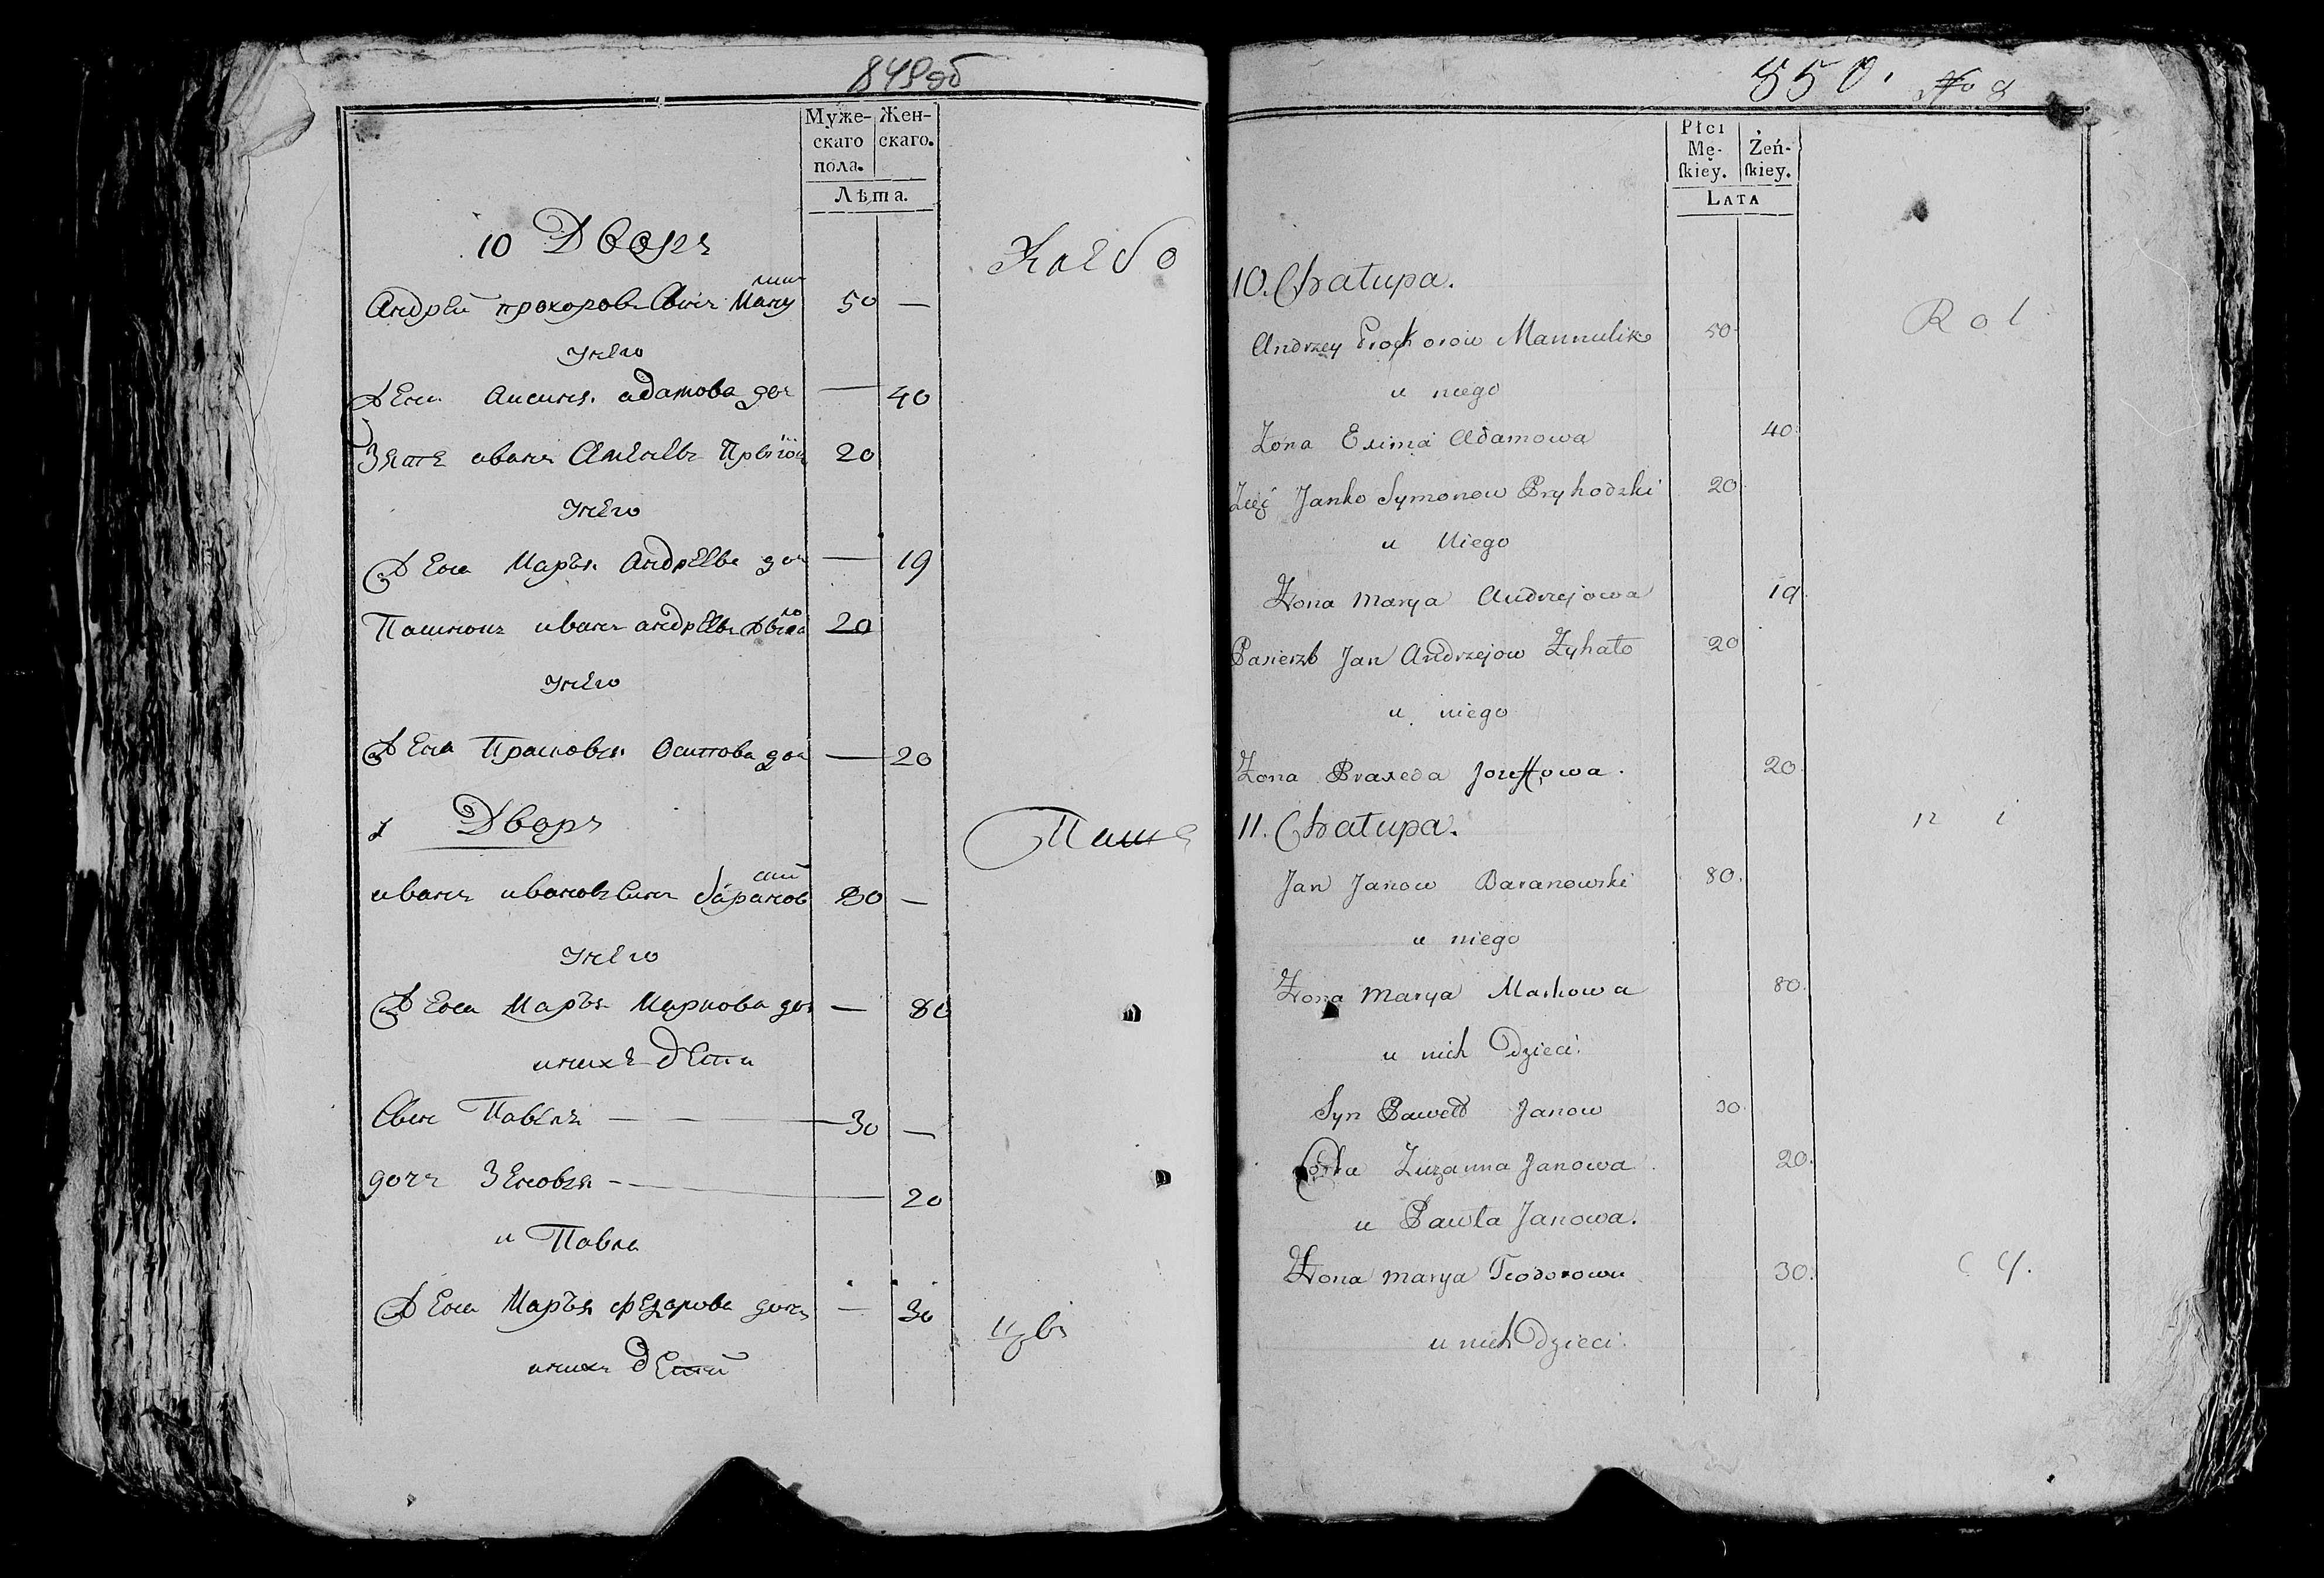 849об
Муже- Жен-
скаго скаго.
пола.
Лѣта.
10 Дворъ
Хлебо
лик
Андрей прохоровъ Сынъ Ману 50 —
Унего
Жена Аксиня адамова доч — 40
Зять иванъ Семеновъ 20
Унего
Жена Марья Андреева доч — 19
ло
Пасынокъ иванъ андреевъ Жыга 20
Унего
Жена Прасковья Осипова доч — 20
Дворъ
Паше
ский
иванъ ивановъ Сынъ баранов 80 —
Унего
Жена Марья Маркова доч — 80
инихъ дети
Сынъ Павелъ — 30 —
дочь Зеновья — 20
и Павла
Жена Марья федарова дочь — 30
инихъ дети
550. No 8
Płci
Mę- Żeń-
ſkiey. ſkiey.
LATA
10. Chałupa.
Rol
Andrzey Prochorow Mannulik 50
u niego
Żona Exima Adamowa 40.
Zięć Janko Symonow Pryhodzki 20.
u Niego
Żona Marya Andrzejowa 19.
Pasierzb Jan Andrzejow Żyhało 20
u niego
Żona Praxeda Jozeffowa. 20.
11. Chałupa.
n i
Jan Janow Baranowski 80.
u niego
Żona Marya Markowa 80.
u nich Dzieci.
Syn Paweł Janow 30.
Córka Zuzanna Janowa. 20.
u Pawła Janowa.
Żona Marya Teodorowa 30.
c y.
u nich Dzieci.